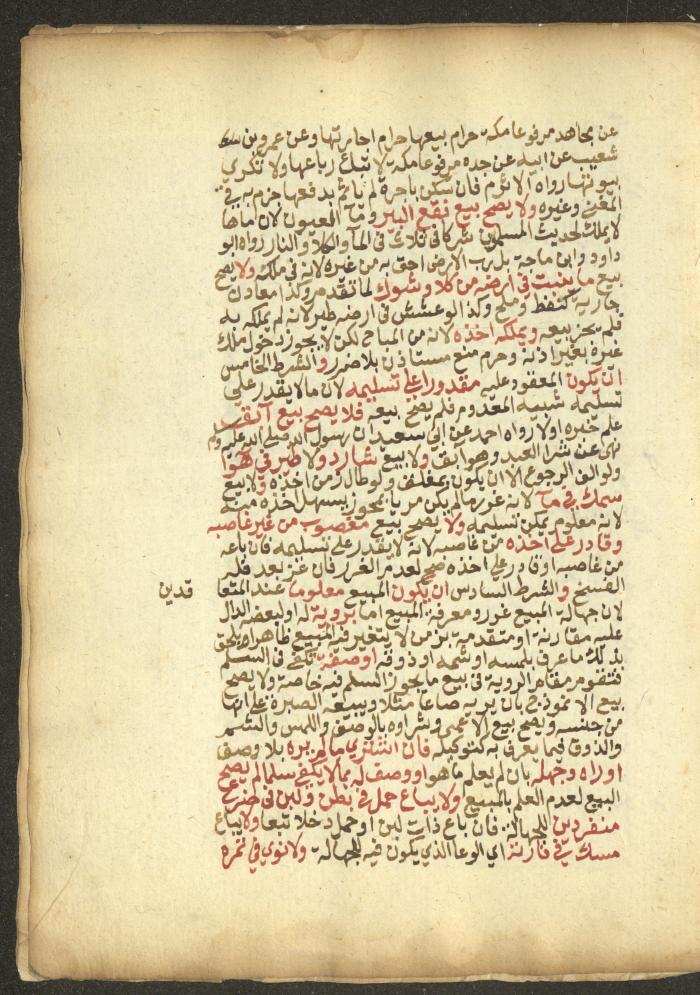 عن مجاهد مرفوعا مكة حرام بيعها حرام اجارتها وعن عمرو بن
شعيب عن ابيه عن جده مرفوعا مكة لا تباع رباعها ولا تكري
بيوتها رواه الاثرم فان سكن باجرة لم ياثم بدفعها جزم به في
المغني وغيره ولا يصح بيع نقع البير وما العيون لان ماها
لا يملك لحديث المسلمون شركا في ثلاث في الما والكلا والنار رواه ابو
داود وابن ماجة بل رب الارض احق به من غيره لانه في ملكه ولا يصح
بيع ما ينبت في ارضه من كلا وشوك لما تقدم وكذا معادن
جارية كنفط وملح وكذا لو عشش في ارضه طير لانه لم يملكه به
فلم يجز بيعه ويملكه اخذه لانه من المباح لكن لا يجوز دخول ملك
غيره بغير اذنه وحرم منع مستاذن بلا ضرر والشرط الخامس
ان يكون المعقود عليه مقدورا على تسليمه لان مالا يقدر على
تسليمه شبيه المعدوم فلم يصح بيعه فلا يصح بيع آبق
علم خبره اولا لما رواه احمد عن ابي سعيد ان رسول الله صلى الله عليه وسلم
نهى عن شرا العبد وهو ابق ولا بيع شارد ولا طير في هوا
ولو الف الرجوع الا ان يكون بمغلق ولو طال زمن اخذه ولا بيع
سمك في ما لانه غرر ما لم يكن مرييا بمحوز يسهل اخذه منه
لانه معلوم يمكن تسليمه ولا يصح بيع مغصوب من غير غاصبه
وقادر على اخذه من غاصبه لانه لا يقدر على تسليمه فان باعه
من غاصبه او قادر على اخذه صح لعدم الغرر فان عجز بعد فله
الفسخ والشرط السادس ان يكون المبيع معلوما عند المتعا
قدين
لان جهالة المبيع غرر ومعرفة المبيع اما بروية له او لبعضه الدال
عليه مقارنة او متقدمة بزمن لا يتغير فيه المبيع ظاهرا ويلحق
بذلك ما عرف بلمسه او شمه او ذوقه او صفة تكفي في السلم
فتقوم مقام الروية في بيع ما يجوز السلم فيه خاصة ولا يصح
بيع الانموذج بان يريه صاعا مثلا ويبيعه الصبرة على انها
من جنسه ويصح بيع الاعمى وشراوه بالوصف واللمس والشم
والذوق فيما يعرف به كتوكيله فان اشترى ما لم يره بلا وصف
او راه وجهله بان لم يعلم ما هو او وصف له بما لا يكفي سلما لم يصح
البيع لعدم العلم بالمبيع ولا يباع حمل في بطن ولبن في ضرع
منفردين للجهالة فان باع ذات لبن او حمل دخلا تبعا ولا يباع
مسك في فارته اي الوعا الذي يكون فيه للجهالة ولا نوى في تمره